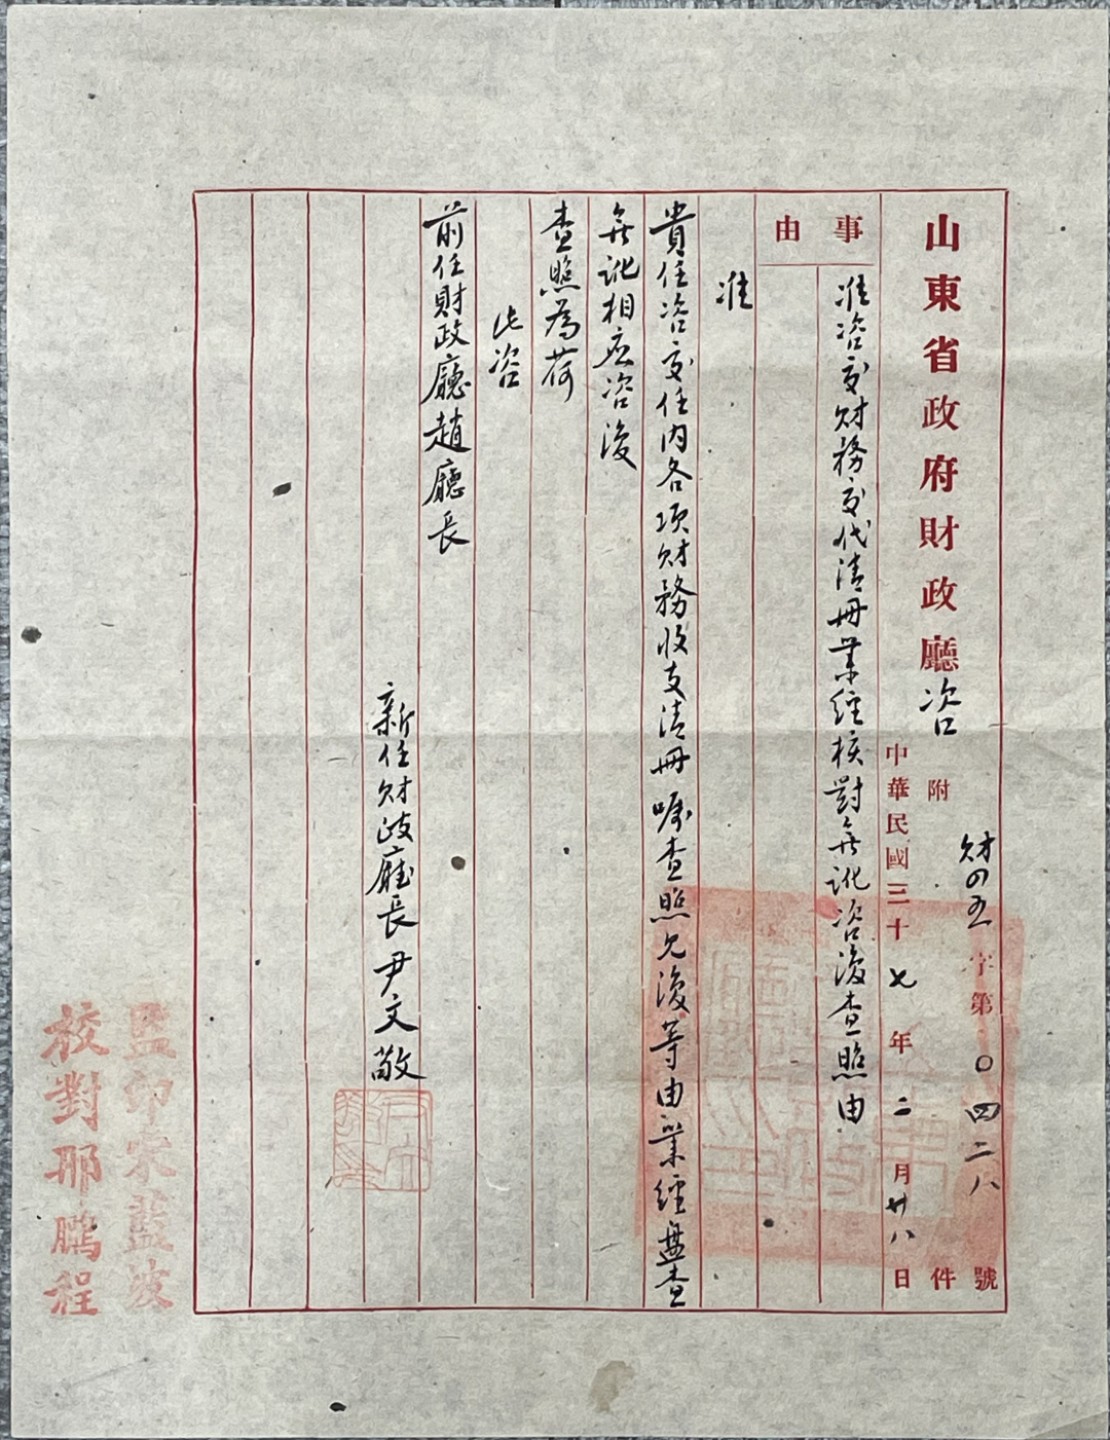 山東省政府財政廳咨
財四五字第〇四二八號
附件
中華民國三十七年二月廿八日
事由
准咨交財務交代清冊業經核對無訛咨復查照由
准
貴任咨交任內各項財務收支清冊囑查照見復等由業經盤查
無訛相應咨復
查照為荷
此咨
前任財政廳趙廳長
新任財政廳長尹文敬
監印宋藍波
校對邢鵬程